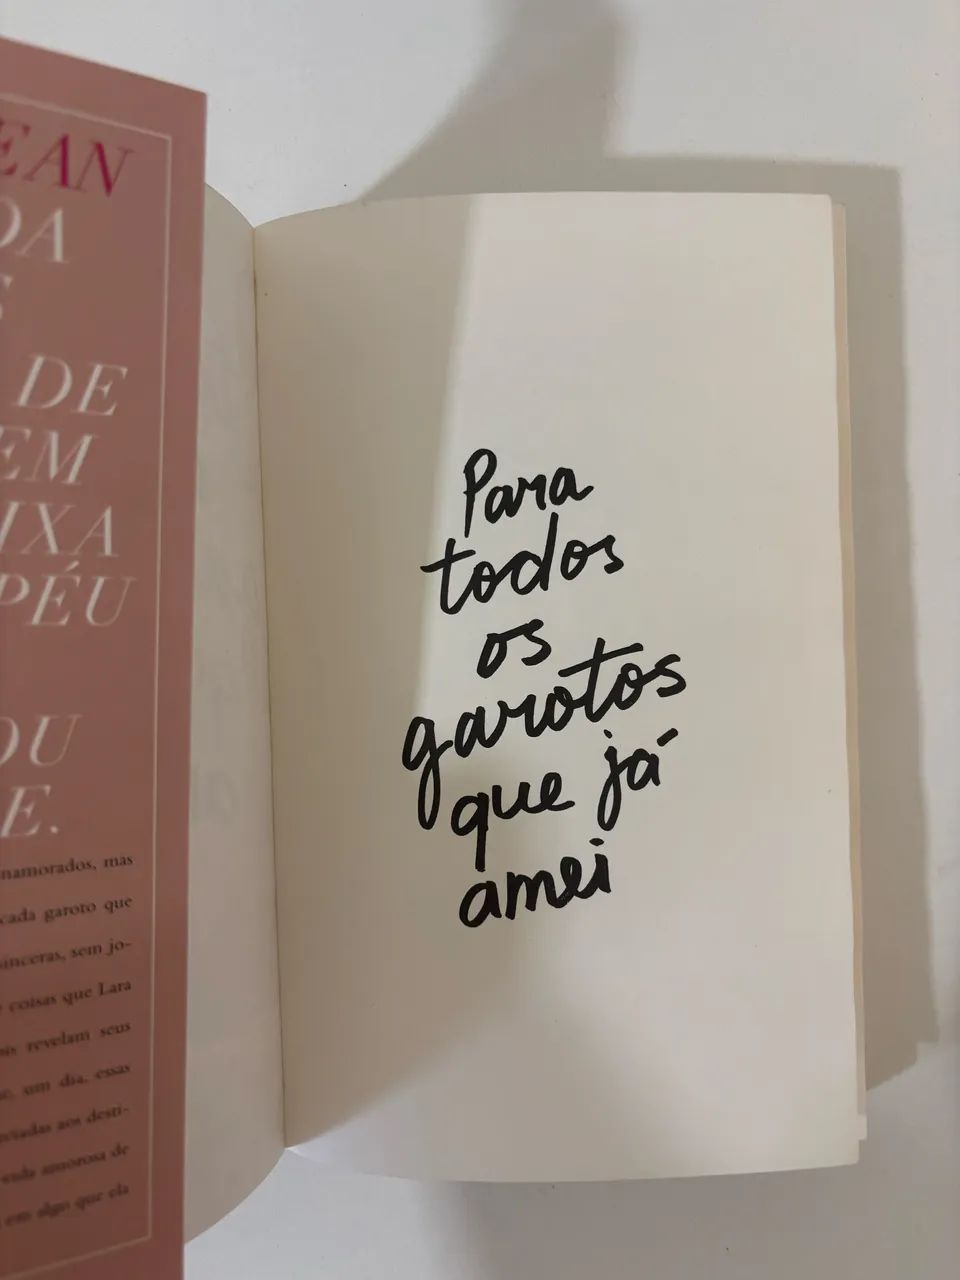 EAN
DA
S
DE
EM
IXA
PÉU
OU
E.
namorados, mas
cada garoto que
sinceras, sem jo-
coisas que Lara
revelam seus
um dia, essas
aos desti-
vida amorosa de
em algo que ela
Para
todos
os
garotos
que já
amei